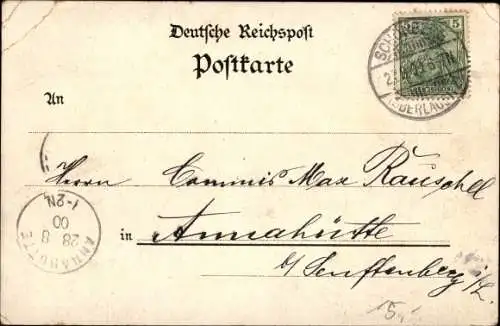 Deutsche Reichspost
Postkarte
5
An
Herrn Commis Max Rauschel
in Annahütte
b/ Senftenberg i/L.
ANNAHÜTTE
28 8
00
1-2N